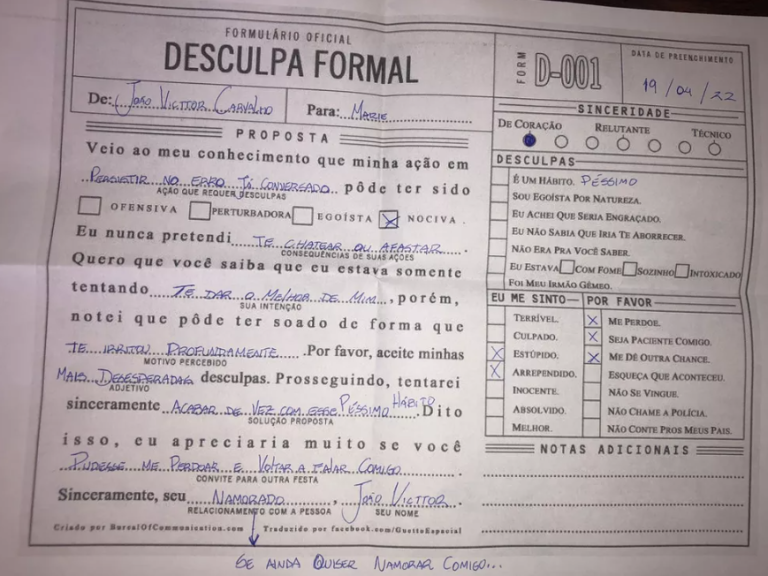 FORMULÁRIO OFICIAL
DESCULPA FORMAL
FORM D-001
DATA DE PREENCHIMENTO
19/04/22
De: João Victtor Carvalho Para: Marie
PROPOSTA
Veio ao meu conhecimento que minha ação em
Persistir no erro já conversado pôde ter sido
AÇÃO QUE REQUER DESCULPAS
OFENSIVA PERTURBADORA EGOÍSTA NOCIVA.
Eu nunca pretendi te chatear ou afastar.
CONSEQUÊNCIAS DE SUAS AÇÕES
Quero que você saiba que eu estava somente
tentando te dar o melhor de mim, porém,
SUA INTENÇÃO
notei que pôde ter soado de forma que
te irritou profundamente. Por favor, aceite minhas
MOTIVO PERCEBIDO
mais desesperadas desculpas. Prosseguindo, tentarei
ADJETIVO
sinceramente acabar de vez com esse péssimo hábito. Dito
SOLUÇÃO PROPOSTA
isso, eu apreciaria muito se você
pudesse me perdoar e voltar a falar comigo
CONVITE PARA OUTRA FESTA
Sinceramente, seu namorado, João Victtor
RELACIONAMENTO COM A PESSOA SEU NOME
Criado por BureauOfCommunication.com Traduzido por facebook.com/GuettoEspacial
SE AINDA QUISER NAMORAR COMIGO...
SINCERIDADE
DE CORAÇÃO RELUTANTE TÉCNICO
DESCULPAS
É UM HÁBITO. PÉSSIMO
SOU EGOÍSTA POR NATUREZA.
EU ACHEI QUE SERIA ENGRAÇADO.
EU NÃO SABIA QUE IRIA TE ABORRECER.
NÃO ERA PRA VOCÊ SABER.
EU ESTAVA COM FOME SOZINHO INTOXICADO
FOI MEU IRMÃO GÊMEO.
EU ME SINTO
TERRÍVEL.
CULPADO.
X ESTÚPIDO.
X ARREPENDIDO.
INOCENTE.
ABSOLVIDO.
MELHOR.
POR FAVOR
X ME PERDOE.
X SEJA PACIENTE COMIGO.
X ME DÊ OUTRA CHANCE.
ESQUEÇA QUE ACONTECEU.
NÃO SE VINGUE.
NÃO CHAME A POLÍCIA.
NÃO CONTE PROS MEUS PAIS.
NOTAS ADICIONAIS